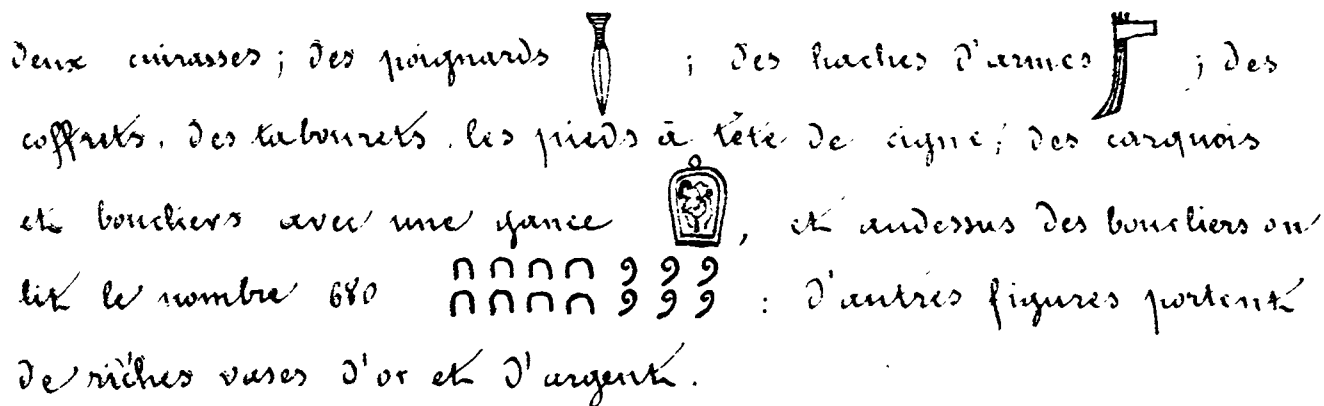 deux cuirasses ; des poignards ; des haches d'armes ; des
coffrets, des tabourets, les pieds à tête de cigne ; des carquois
et boucliers avec une gance , et audessus des boucliers on
lit le nombre 680 𓎆𓎆𓎆𓎆𓍢𓍢𓍢 𓎆𓎆𓎆𓎆𓍢𓍢𓍢 : d'autres figures portent
de riches vases d'or et d'argent.